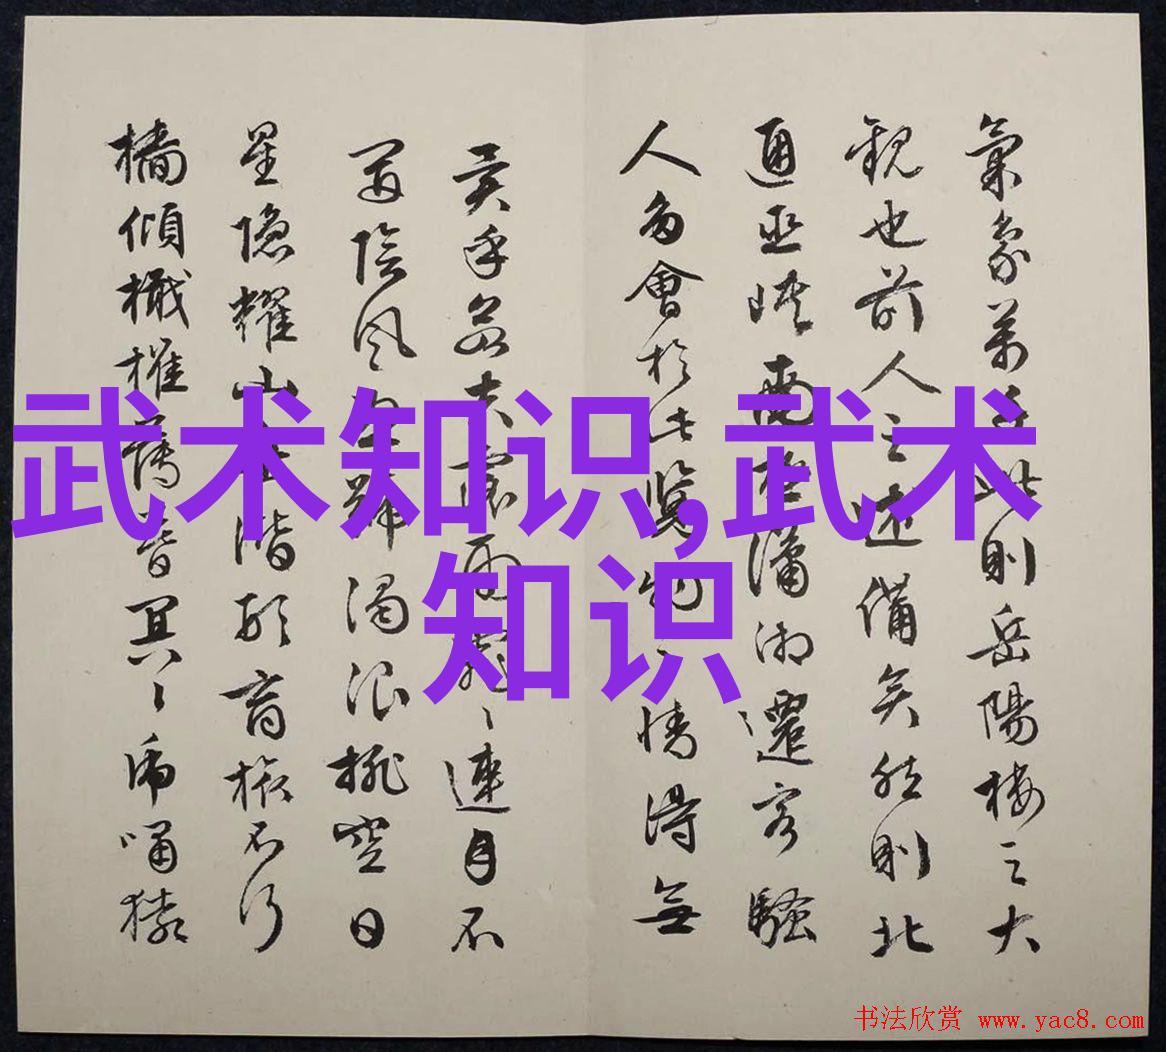 氣象萬千此則岳陽樓之大
觀也前人之述備矣然則北
通巫峽南極瀟湘遷客騷
人多會於此覽物之情得無
異乎若夫霪雨霏〻連月不
開陰風怒號濁浪排空日
星隱耀山岳潛形商旅不行
檣傾檝摧薄暮冥〻虎嘯猿
武术知识,武术
知识
书法欣赏 www.yac8.com